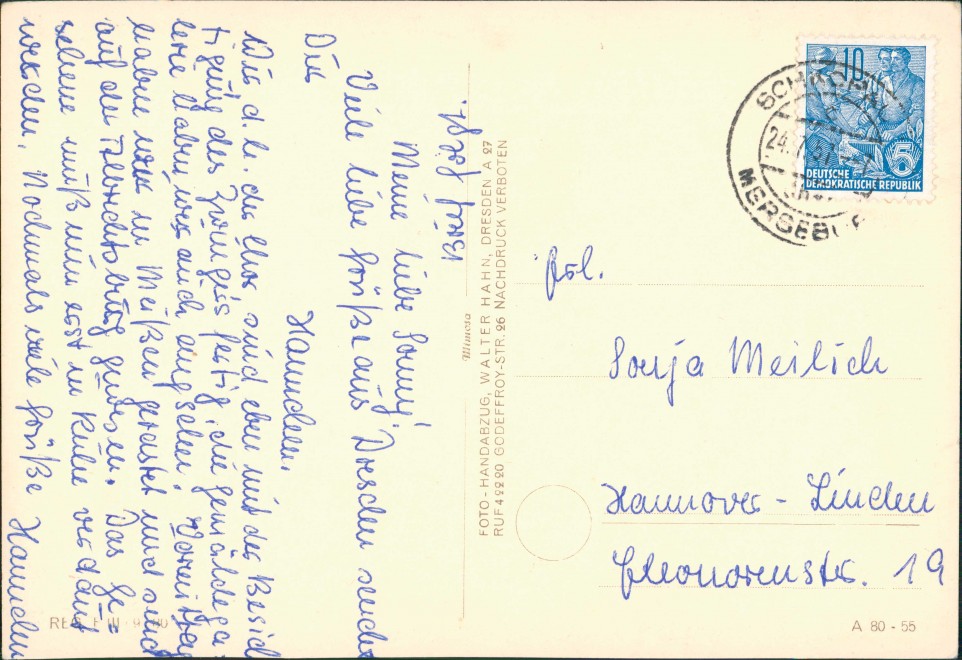 Meine liebe Sonny!
Viele liebe Grüße aus Dresden sendet
Dir
Hannchen.
Wir d.h. der Chor, sind eben mit der Besich
tigung des Zwingers fertig, die Gemäldega-
lerie haben wir auch angesehen. Vormittag
haben wir in Meißen gerastet und sind
auf der Albrechtsburg gewesen. Das Ge=
sehene muß nun erst in Ruhe verdaut
werden. Nochmals viele Grüße Hannchen
Mimosa
FOTO-HANDABZUG, WALTER HAHN, DRESDEN A 27
RUF 42220 GODEFFROY-STR. 26 NACHDRUCK VERBOTEN
10
DEUTSCHE
DEMOKRATISCHE REPUBLIK
5
24.7.57
MERSEBU
Frl.
Sonja Meilich
Hannover - Linden
Eleonorenstr. 19
A 80 - 55